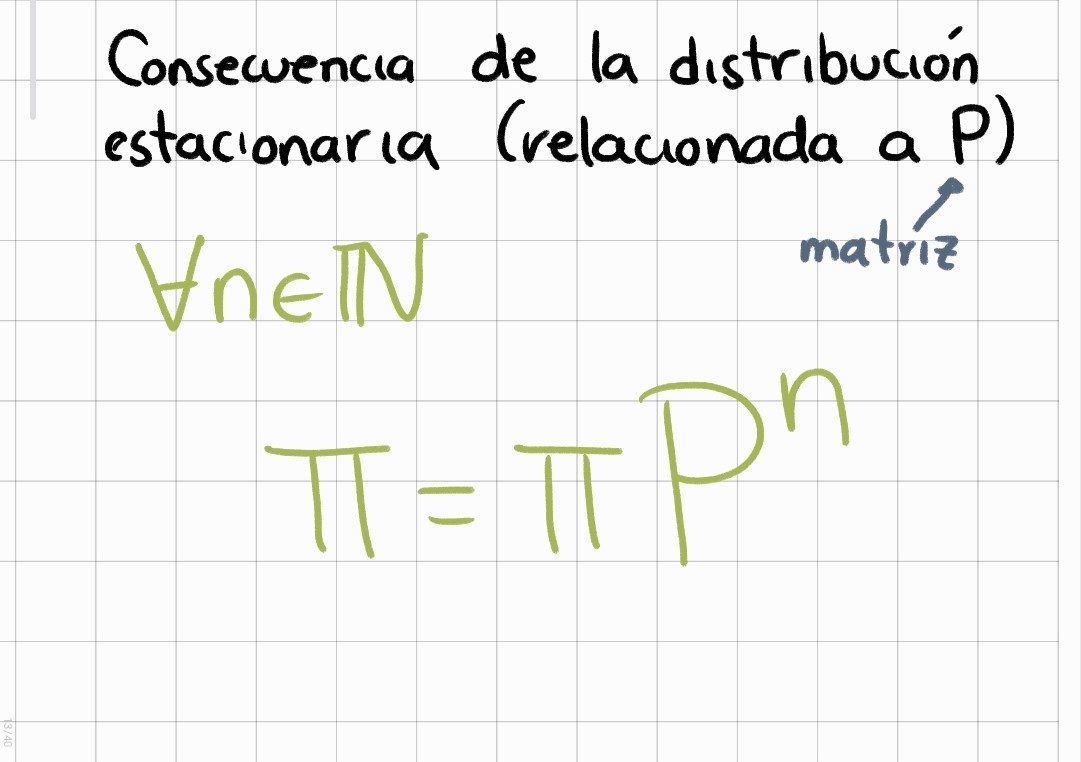 Consecuencia de la distribución
estacionaria (relacionada a P)
matriz
∀n∈ℕ
π = π Pⁿ
13/40